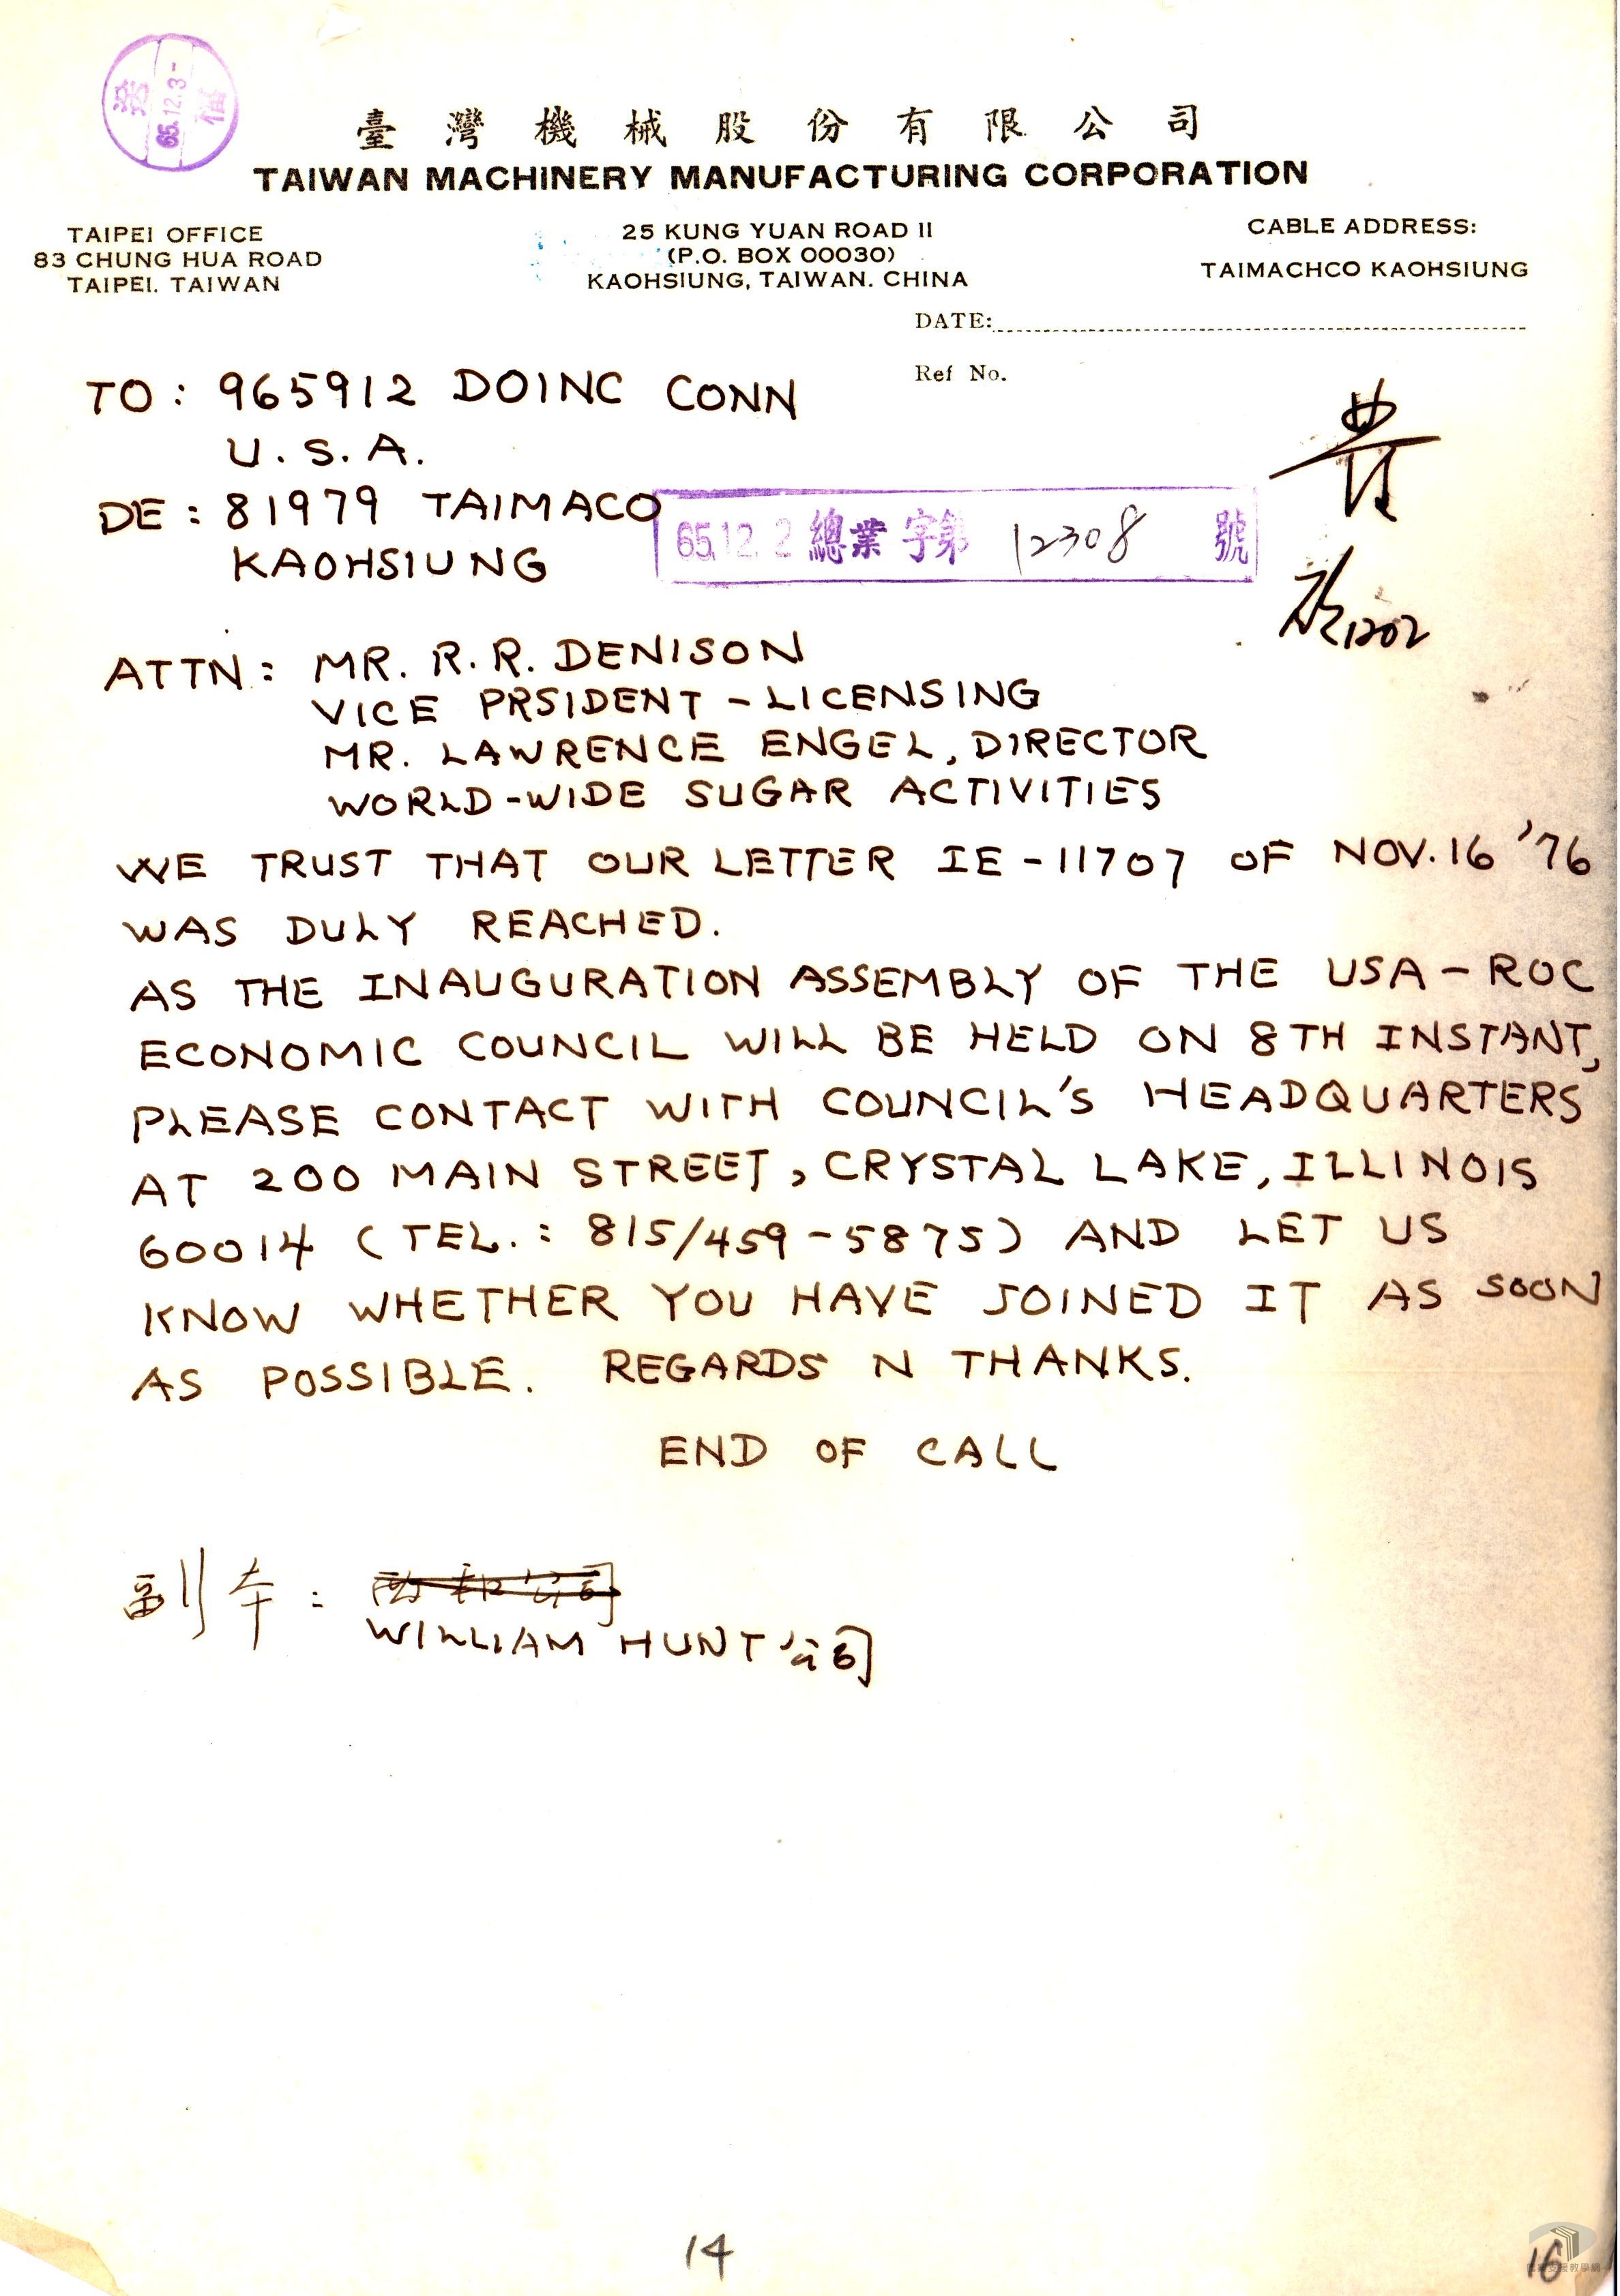 65.12.3-
臺灣機械股份有限公司
TAIWAN MACHINERY MANUFACTURING CORPORATION
TAIPEI OFFICE
83 CHUNG HUA ROAD
TAIPEI. TAIWAN
25 KUNG YUAN ROAD II
(P.O. BOX 00030)
KAOHSIUNG, TAIWAN. CHINA
CABLE ADDRESS:
TAIMACHCO KAOHSIUNG
DATE:
Ref No.
TO: 965912 DOINC CONN
U.S.A.
DE: 81979 TAIMACO
KAOHSIUNG
65.12.2 總業字第 12308 號
1202
ATTN: MR. R.R. DENISON
VICE PRSIDENT - LICENSING
MR. LAWRENCE ENGEL, DIRECTOR
WORLD-WIDE SUGAR ACTIVITIES
WE TRUST THAT OUR LETTER IE-11707 OF NOV. 16 '76
WAS DULY REACHED.
AS THE INAUGURATION ASSEMBLY OF THE USA-ROC
ECONOMIC COUNCIL WILL BE HELD ON 8TH INSTANT,
PLEASE CONTACT WITH COUNCIL'S HEADQUARTERS
AT 200 MAIN STREET, CRYSTAL LAKE, ILLINOIS
60014 (TEL.: 815/459-5875) AND LET US
KNOW WHETHER YOU HAVE JOINED IT AS SOON
AS POSSIBLE. REGARDS N THANKS.
END OF CALL
副本:
WILLIAM HUNT 公司
14
16